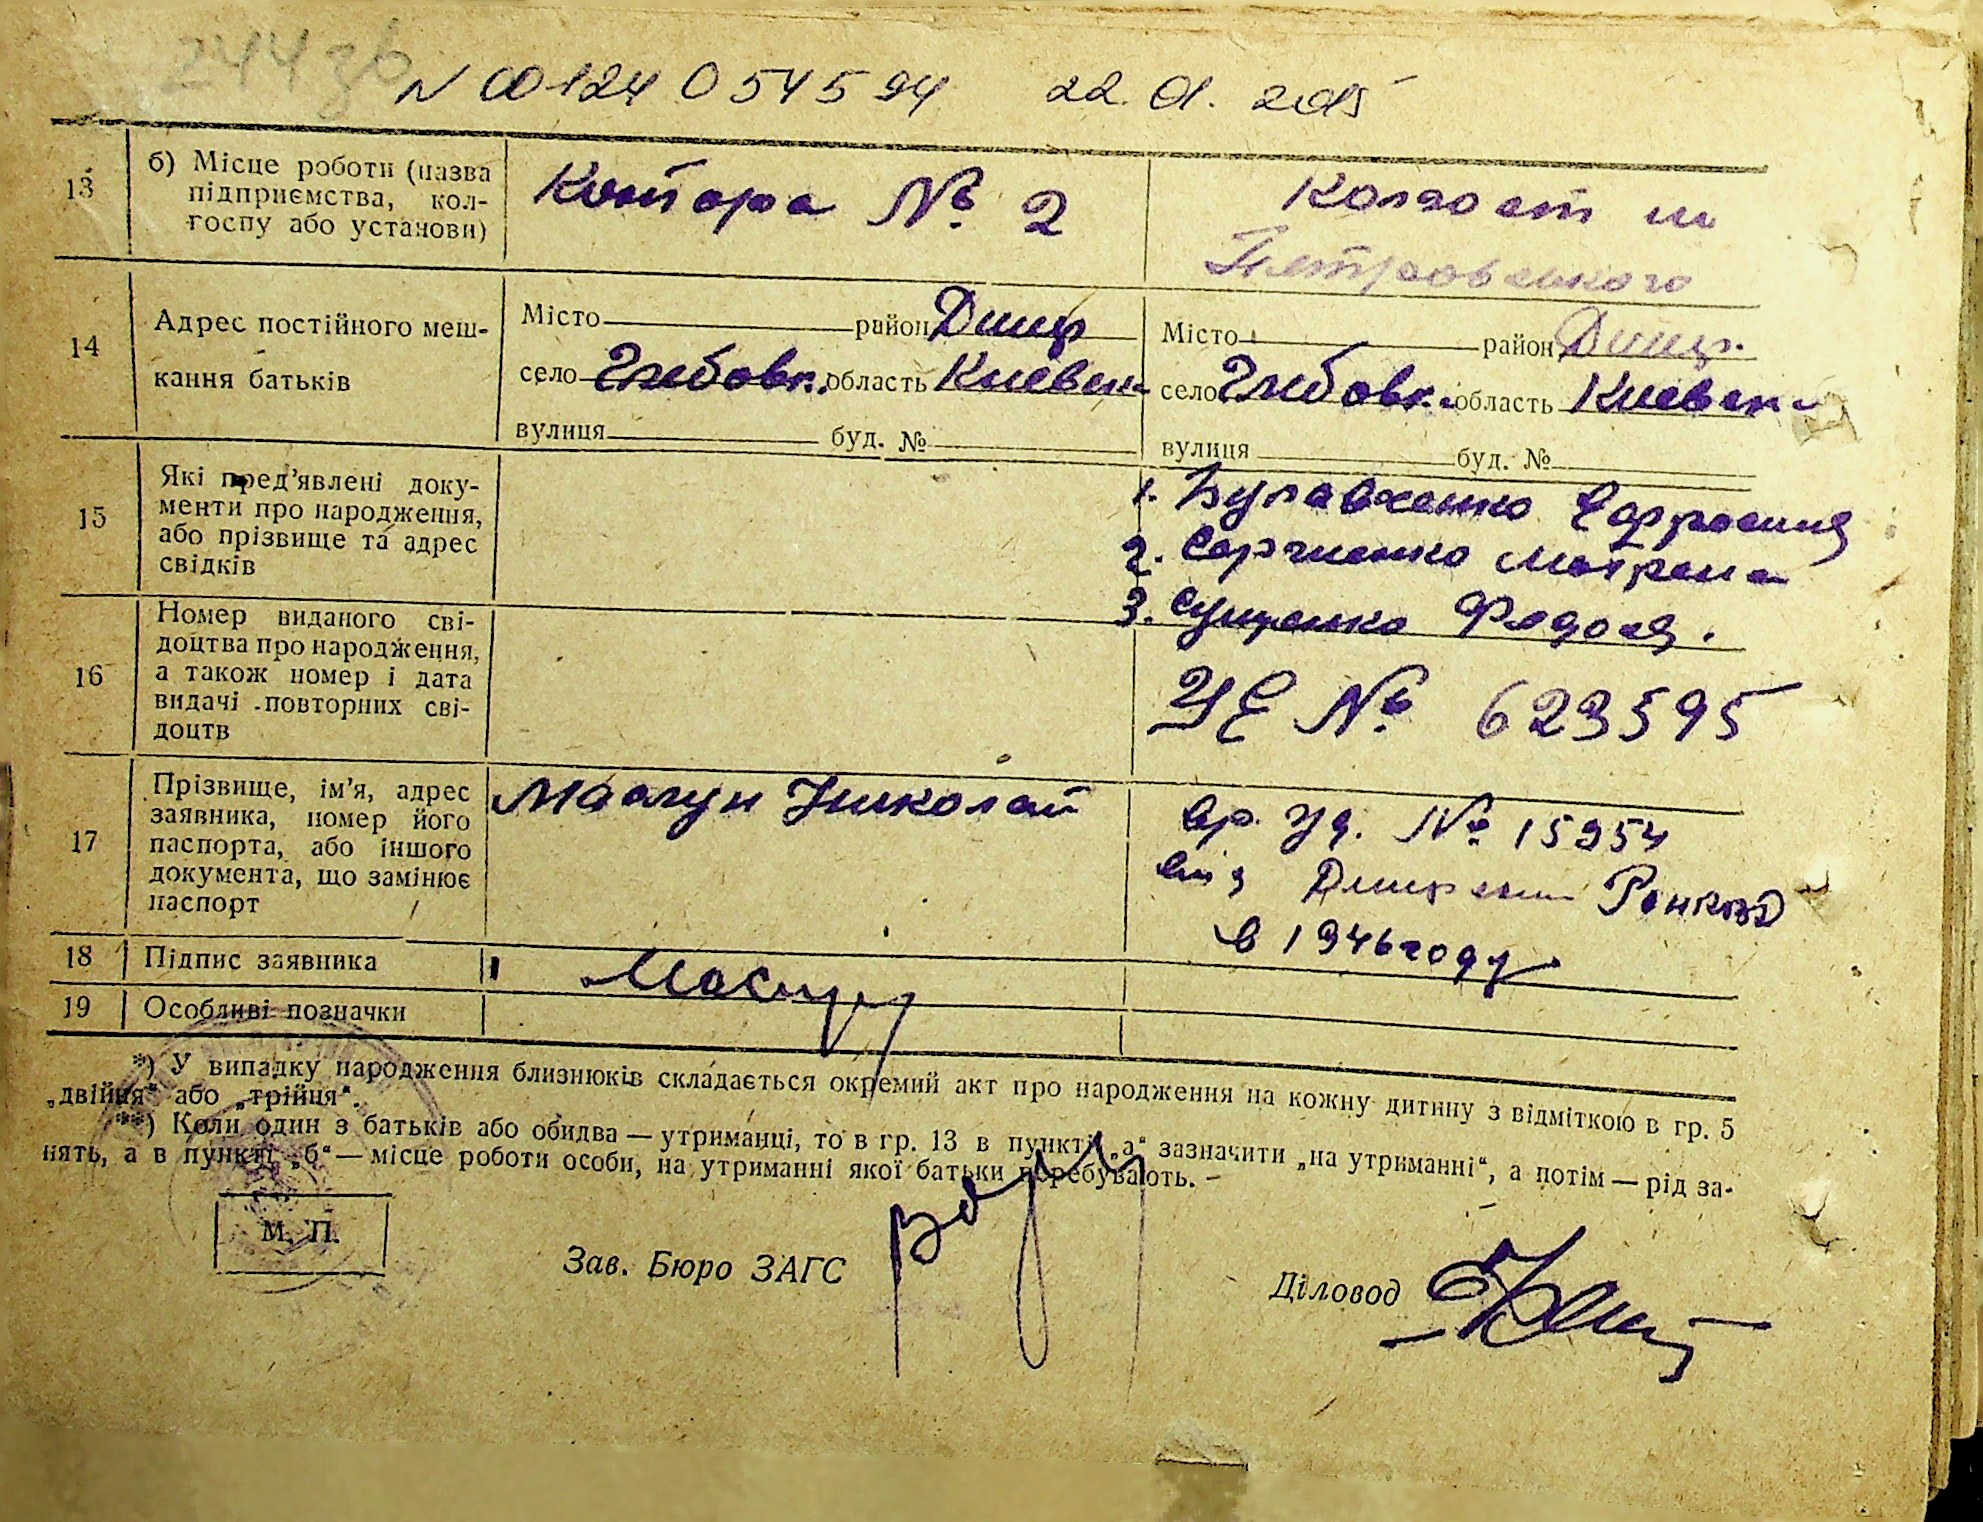 244зв
N 00124054594 22.01.2015
13 б) Місце роботи (назва підприємства, кол-
госпу або установи)
Контора № 2
Колгосп им
Петровського
14 Адрес постійного меш-
кання батьків
Місто район Димер
село Глебовк. область Киевск
вулиця буд. №
Місто район Димер.
село Глебовк. область Киевск
вулиця буд. №
15 Які пред’явлені доку-
менти про народження,
або прізвище та адрес
свідків
1. Булавженко Ефросиния
2. Сергиенко Матрена
3. Сущенко Федося.
16 Номер виданого сві-
доцтва про народження,
а також номер і дата
видачі повторних сві-
доцтв
УЕ № 623595
17 Прізвище, ім’я, адрес
заявника, номер його
паспорта, або іншого
документа, що замінює
паспорт
Николай
Вр. уд. № 15954
Димерским
в 1946 году
18 Підпис заявника
19 Особливі позначки
*) У випадку народження близнюків складається окремий акт про народження на кожну дитину з відміткою в гр. 5
„двійня“ або „трійня“.
**) Коли один з батьків або обидва — утриманці, то в гр. 13 в пункті „а“ зазначити „на утриманні“, а потім — рід за-
нять, а в пункті „б“ — місце роботи особи, на утриманні якої батьки перебувають.
М. П.
Зав. Бюро ЗАГС
Діловод